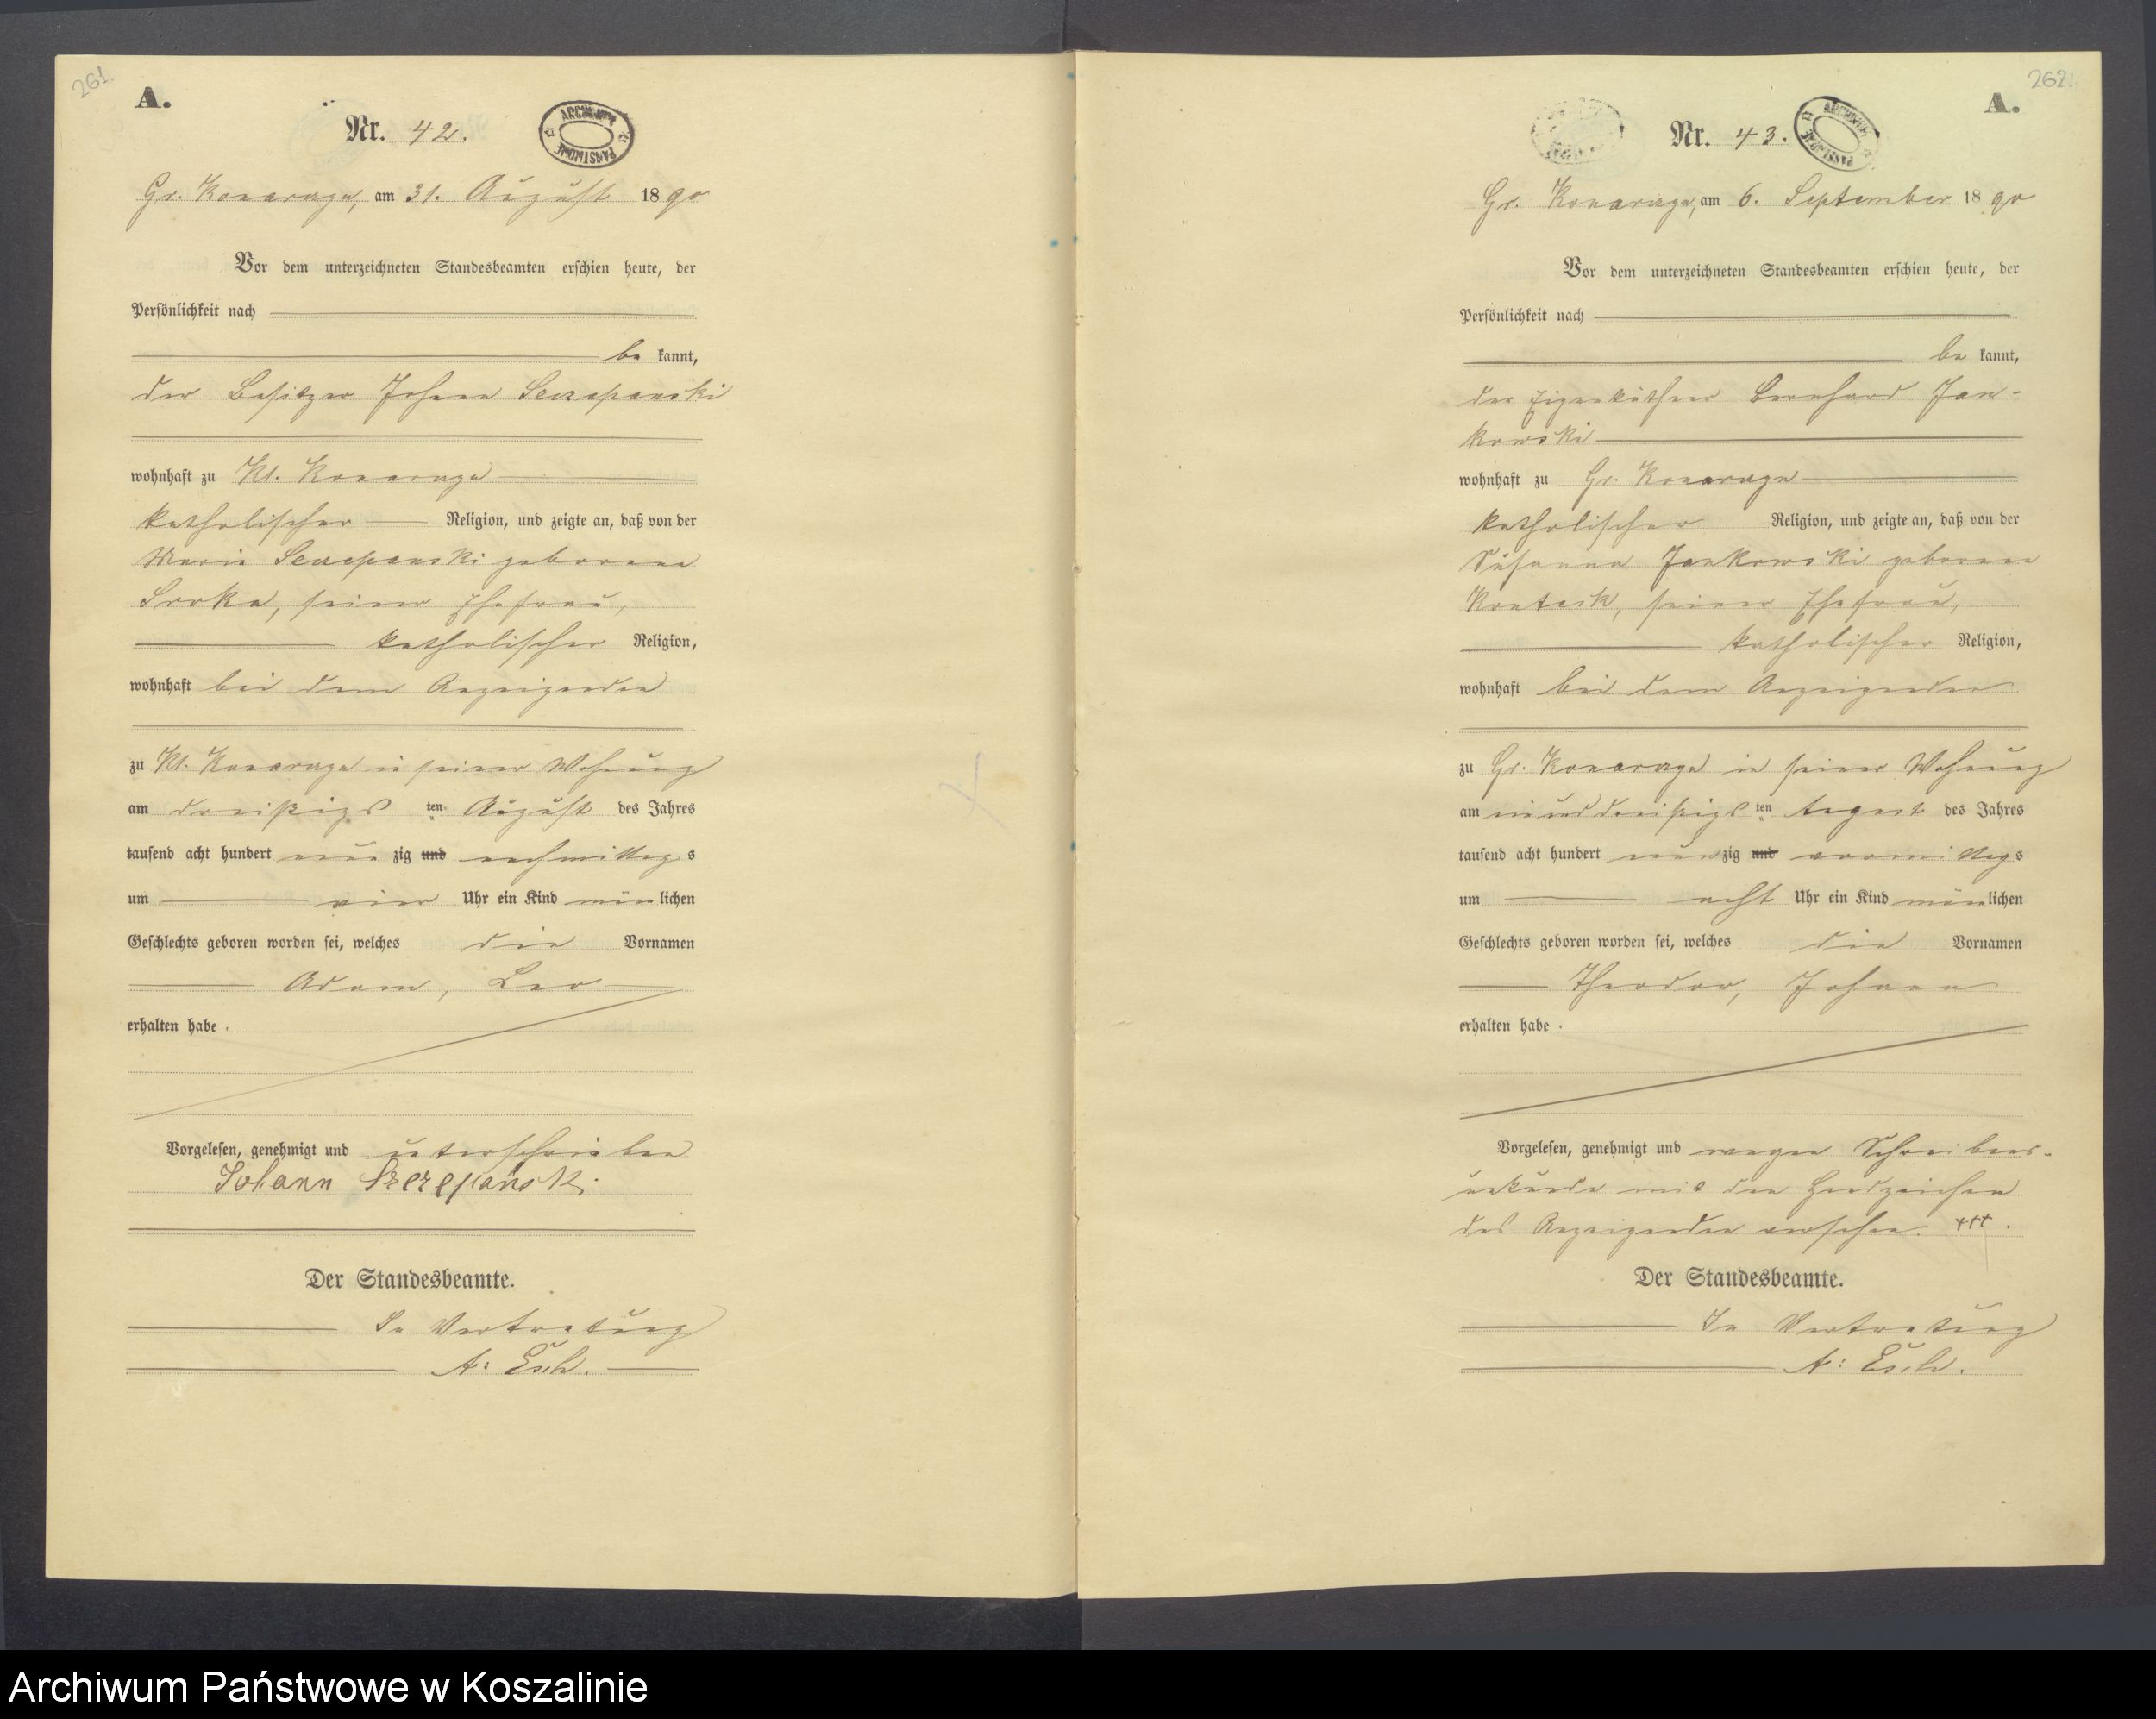 261.
A.
Nr. 42.
ARCHIWUM PAŃSTWOWE
Gr. Konarczyn, am 31. August 1890
Vor dem unterzeichneten Standesbeamten erschien heute, der
Persönlichkeit nach
be kannt,
der Besitzer Johann Szczepanski
wohnhaft zu Kl. Konarczyn
katholischer Religion, und zeigte an, daß von der
Maria Szczepanski geborene
Sroka, seiner Ehefrau,
katholischer Religion,
wohnhaft bei dem Anzeigenden
zu Kl. Konarczyn in seiner Wohnung
am dreißigs ten August des Jahres
tausend acht hundert neun zig und nachmittag s
um vier Uhr ein Kind männlichen
Geschlechts geboren worden sei, welches die Vornamen
Adam, Leo
erhalten habe.
Vorgelesen, genehmigt und unterschrieben
Johann Szczepański
Der Standesbeamte.
In Vertretung
A: Esch.
262.
A.
Nr. 43.
ARCHIWUM PAŃSTWOWE
Gr. Konarczyn, am 6. September 1890
Vor dem unterzeichneten Standesbeamten erschien heute, der
Persönlichkeit nach
be kannt,
der Eigenkäthner Bernhard Jan-
kowski
wohnhaft zu Gr. Konarczyn
katholischer Religion, und zeigte an, daß von der
Susanna Jankowski geborene
seiner Ehefrau,
katholischer Religion,
wohnhaft bei dem Anzeigenden
zu Gr. Konarczyn in seiner Wohnung
am einunddreißigs ten August des Jahres
tausend acht hundert neun zig und vormittags
um acht Uhr ein Kind männlichen
Geschlechts geboren worden sei, welches die Vornamen
Theodor, Johann
erhalten habe.
Vorgelesen, genehmigt und wegen Schreibens-
unkunde mit den Handzeichen
des Anzeigenden versehen. +++.
Der Standesbeamte.
In Vertretung
A: Esch.
Archiwum Państwowe w Koszalinie